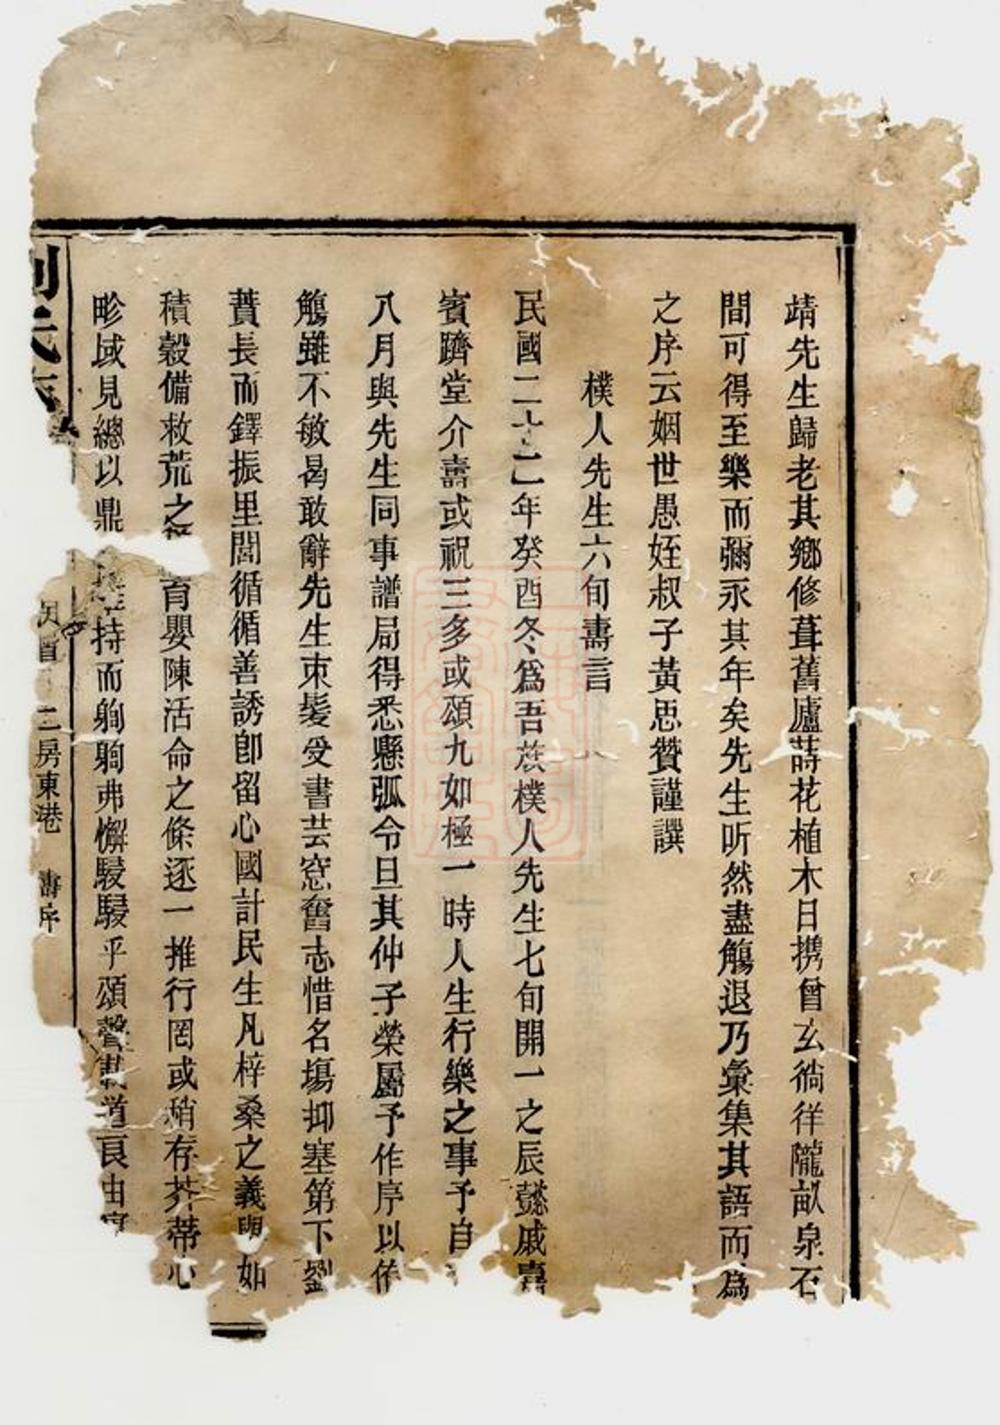 靖先生歸老其鄉修葺舊廬蒔花植木日携曾玄徜徉隴畝泉石
間可得至樂而彌永其年矣先生听然盡觴退乃彙集其語而為
之序云姻世愚姪叔子黃思贊謹譔
樸人先生六旬壽言
民國二十二年癸酉冬為吾族樸人先生七旬開一之辰懿戚嘉
賓躋堂介壽或祝三多或頌九如極一時人生行樂之事予自
八月與先生同事譜局得悉懸弧令旦其仲子榮屬予作序以侑
觴雖不敏曷敢辭先生束髮受書芸窓奮志惜名塲抑塞第下劉
蕡長而鐸振里閭循循善誘卽留心國計民生凡梓桑之義如
積穀備救荒之育嬰陳活命之條逐一推行罔或稍存芥蒂心
畛域見總以鼎持而躬躬弗懈駸駸乎頌聲載道良由
劉氏
二房東港 壽序